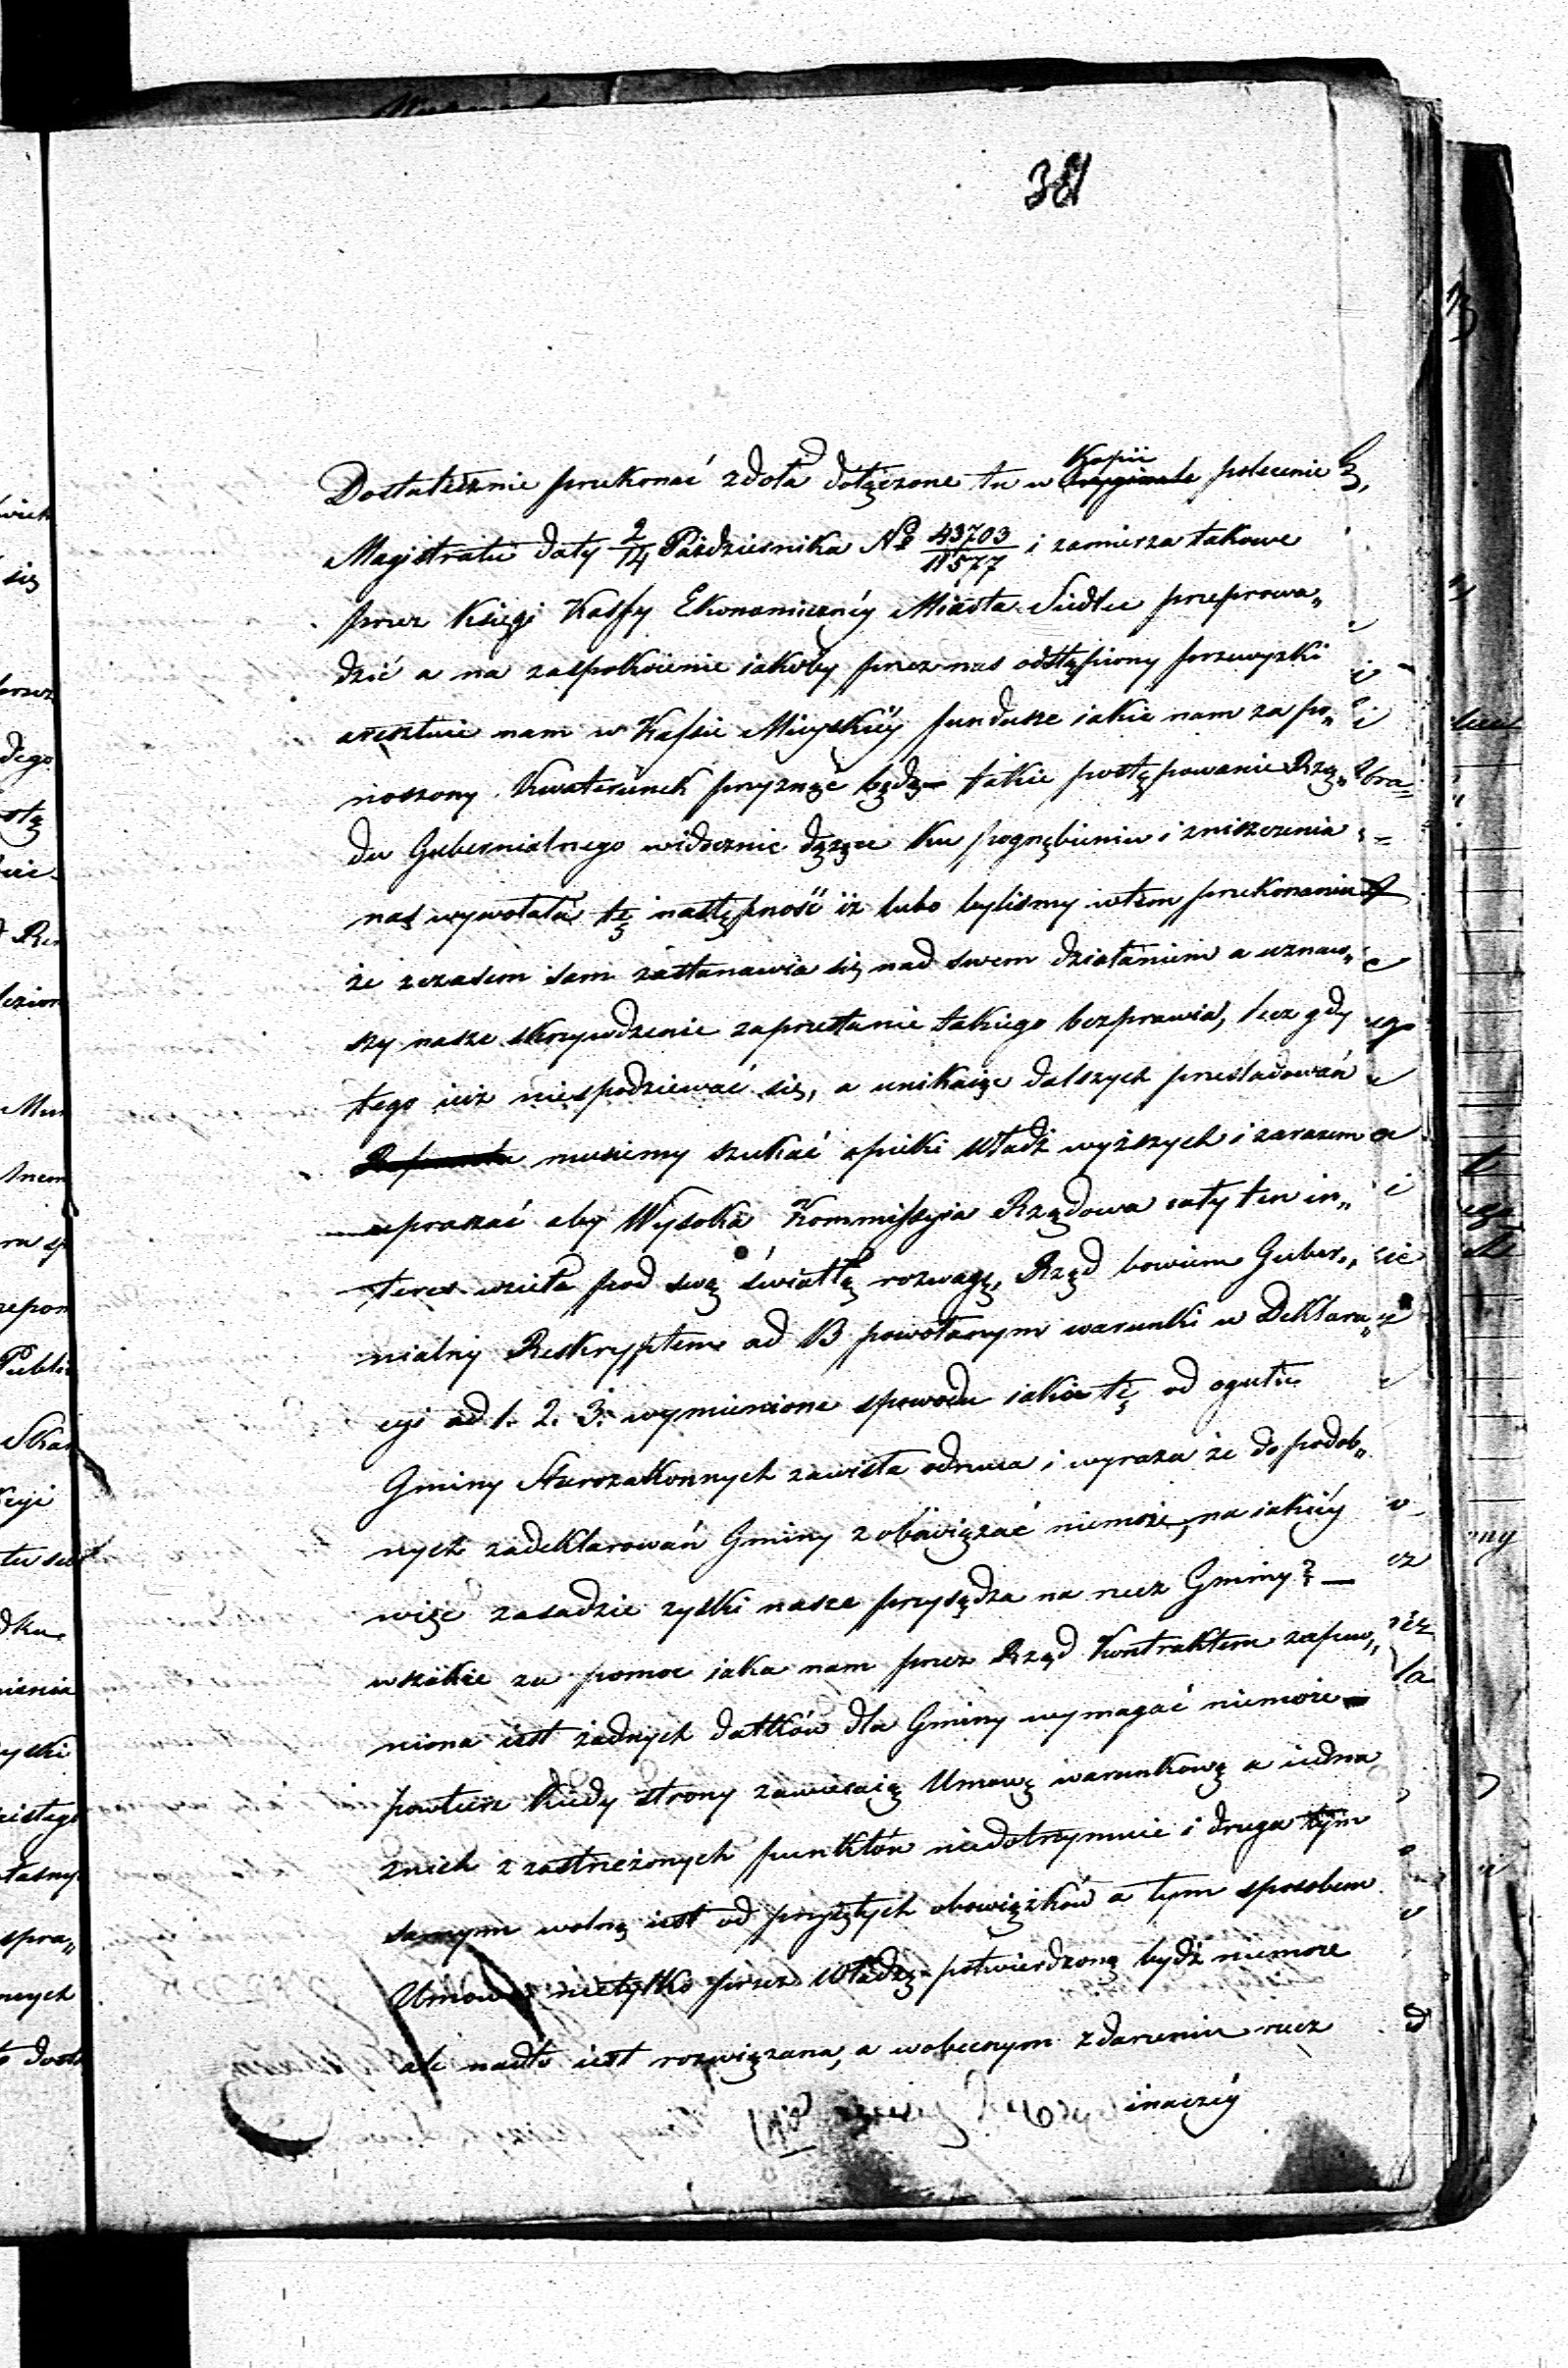 381
Dostatecznie przekonać zdoła dołączone tu w Kopii polecenie
Magistratu daty 2/14 Października No 43703/11577 i zamierza takowe
przez Księgi Kassy Ekonomicznéy Miasta Siedlec przeprowa„
dzić a na zaspokoienie iakoby przez nas odstąpiony przewyżki
aresztuie nam w Kassie Mieyskiéy fundusze iakie nam za po„
noszony Kwaterunek przyznać będą — takie postępowanie Rzą„
du Gubernialnego widocznie dążące ku pognębieniu i zniszczenia
nas wywołała tę następność iż lubo byliśmy w tem przekonaniu
że z czasem sam zastanawia się nad swem działaniem a uznaw„
szy nasze skrzywdzenie zaprzestanie takiego bezprawia, lecz gdy
tego iuż niespodziewać się, a unikaiąc dalszych prześladowań
musiemy szukać opieki Władz wyższych i zarazem
upraszać aby Wysoka Kommissyia Rządowa cały ten in„
teres wzieła pod swą światłą rozwagę, Rząd bowiem Guber„
nialny Reskryptem ad B powołanym warunki w Deklara„
cyi ad 1. 2. 3. wymienione spowodu iakie tę od ogułu
Gminy Starozakonnych zawisła odrzuca i wyraża że do podob„
nych zadeklarowań Gminy zobowiązać niemoże, na iakiéy
więc zasadzie zyski nasze przysądza na rzecz Gminy? —
wszakże za pomoc iaka nam przez Rząd Kontraktem zapew„
niona iest żadnych datków dla Gminy wymagać niemoże —
powtóre kiedy strony zawieraią Umowę warunkową a iedna
z nich z zastrzeżonych punktów niedotrzymuie i druga tym
samym wolną iest od przyiętych obowiązków a tym sposobem
Umowa nietylko przez Władzę potwierdzoną bydź niemoże
ale nadto iest rozwiązana, a w obecnym zdarzeniu rzecz
inaczéy